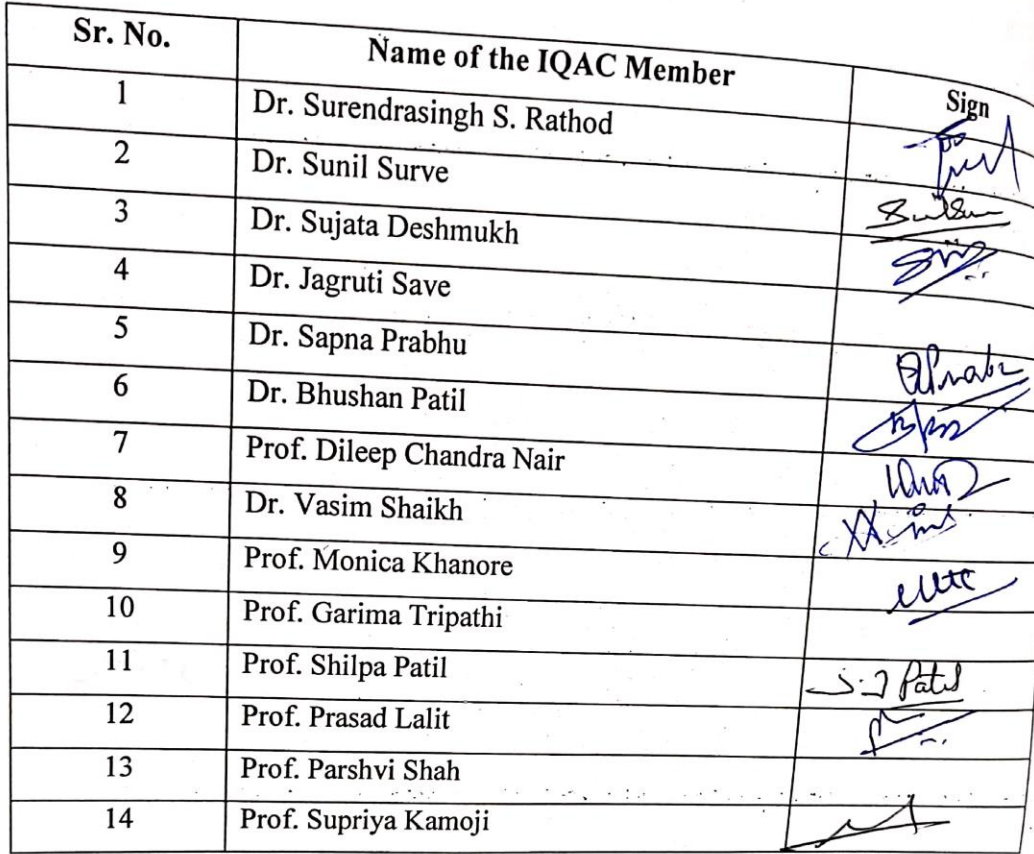 Sr. No. Name of the IQAC Member Sign
1 Dr. Surendrasingh S. Rathod
2 Dr. Sunil Surve
3 Dr. Sujata Deshmukh
4 Dr. Jagruti Save
5 Dr. Sapna Prabhu
6 Dr. Bhushan Patil
7 Prof. Dileep Chandra Nair
8 Dr. Vasim Shaikh
9 Prof. Monica Khanore
10 Prof. Garima Tripathi
11 Prof. Shilpa Patil Patil
12 Prof. Prasad Lalit
13 Prof. Parshvi Shah
14 Prof. Supriya Kamoji